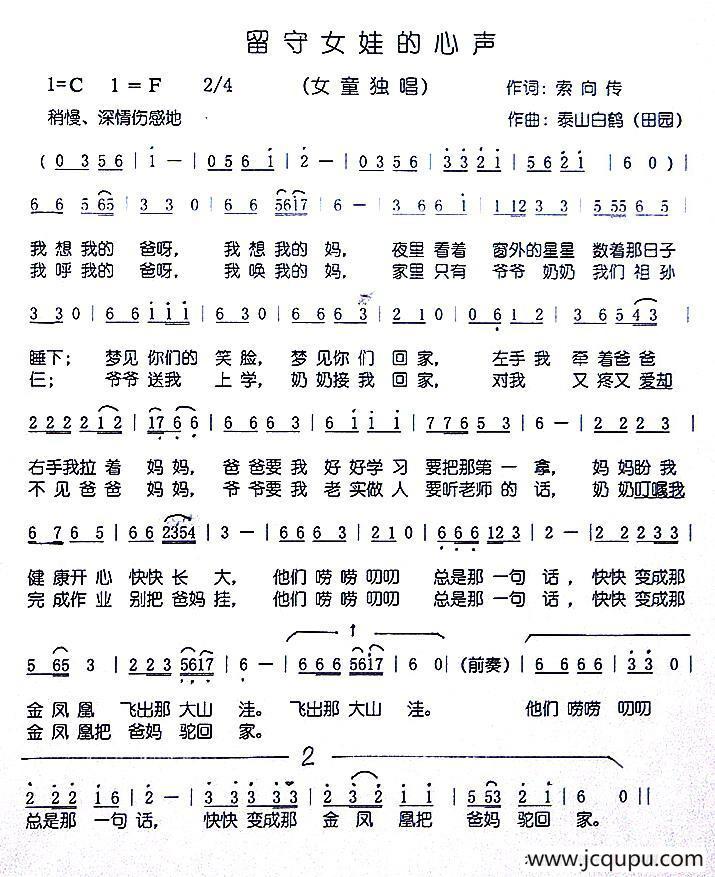 留守女娃的心声
1=C 1=F 2/4 (女童独唱) 作词：索向传
稍慢、深情伤感地 作曲：泰山白鹤（田园）
( 0 3 5 6 | i - | 0 5 6 i | 2 - | 0 3 5 6 | 3 3 2 i | 5 6 2 i | 6 0 )
6 6 5 65 | 3 3 0 | 6 6 5617 | 6 - | 3 6 6 1 | 1 2 3 3 | 5 55 6 5 |
我想我的 爸呀， 我想我的 妈， 夜里看着 窗外的星星 数着那日子
我呼我的 爸呀， 我唤我的 妈， 家里只有 爷爷 奶奶 我们 祖孙
3 3 0 | 6 6 i i i | 6 6 3 | 2 1 0 | 0 6 1 2 | 3 6 5 43 |
睡下； 梦见你们的 笑脸， 梦见你们 回家， 左手我 牵着爸爸
仨； 爷爷送我 上学， 奶奶接我 回家， 对我 又疼又爱却
2 2 2 2 12 | 17 6 6 | 6 6 6 3 | 6 i i i | 7 7 6 5 3 | 6 - | 2 2 2 3 |
右手我拉着 妈妈， 爸爸要我 好好学习 要把那第一拿， 妈妈盼我
不见爸爸 妈妈， 爷爷要我 老实做人 要听老师的话， 奶奶叮嘱我
6 7 6 5 | 6 6 2354 | 3 - | 6 6 6 3 | 2 1 0 | 6 6 6 12 3 | 2 - | 2 2 2 3 3 |
健康开心 快快长 大， 他们唠唠叨叨 总是那一句 话， 快快 变成那
完成作业 别把爸妈 挂， 他们唠唠叨叨 总是那一句 话， 快快 变成那
1
5 65 3 | 2 2 3 5617 | 6 - | 6 6 6 5617 | 6 0 | (前奏) | 6 6 6 6 | 3 3 0 |
金凤凰 飞出那大山 洼。 飞出那大山 洼。 他们唠唠 叨叨
金凤凰把 爸妈驼回 家。
2
2 2 2 i 6 | 2 - | 3 3 3 3 3 | 2 3 2 i i | 5 53 2 i | 6 0 ‖
总是那 一句 话， 快快 变成那 金凤 凰把 爸妈 驼回 家。
www.jcqupu.com